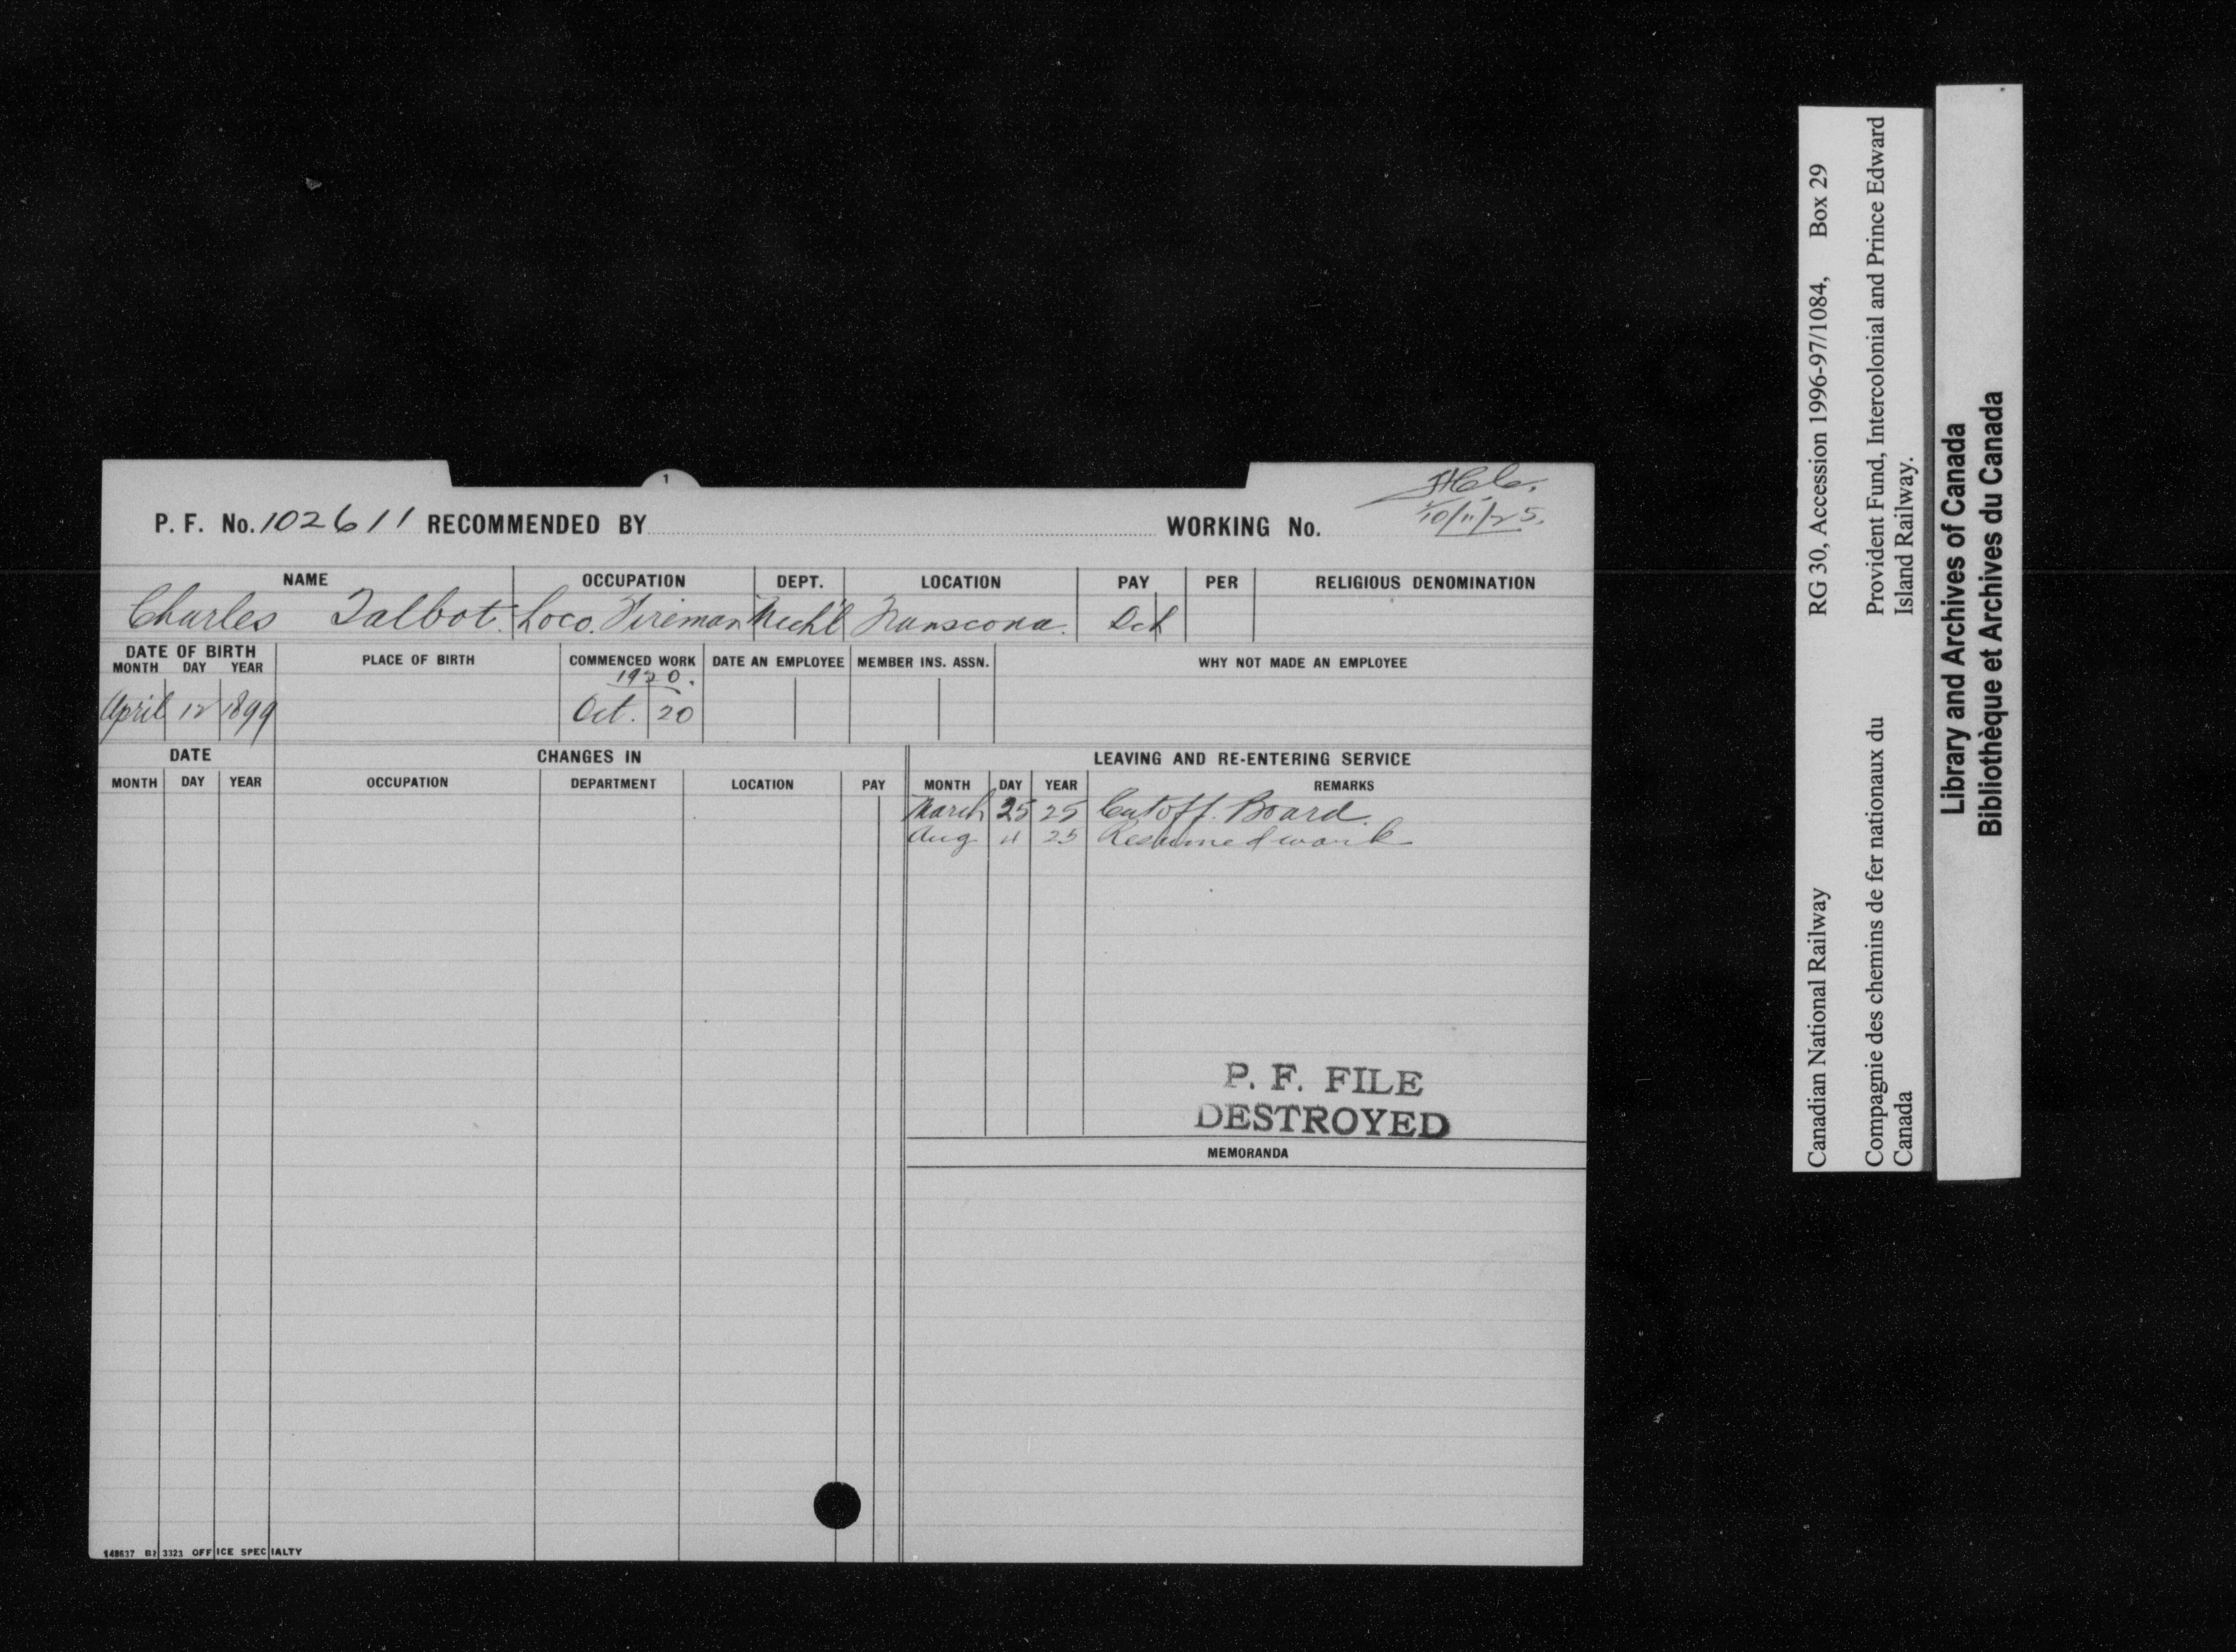 1
P. F. No. 102611 RECOMMENDED BY WORKING No.
10/11/25.
NAME OCCUPATION DEPT. LOCATION PAY PER RELIGIOUS DENOMINATION
Charles Talbot. Loco. Fireman Mech'l Transcona. Sch
DATE OF BIRTH
MONTH DAY YEAR PLACE OF BIRTH COMMENCED WORK DATE AN EMPLOYEE MEMBER INS. ASSN. WHY NOT MADE AN EMPLOYEE
1920.
April 12 1899 Oct. 20
DATE CHANGES IN LEAVING AND RE-ENTERING SERVICE
MONTH DAY YEAR OCCUPATION DEPARTMENT LOCATION PAY MONTH DAY YEAR REMARKS
March 25 25 Cut off Board.
Aug 11 25 Resumed work
P. F. FILE
DESTROYED
MEMORANDA
148637 B2 3323 OFFICE SPECIALTY
Canadian National Railway RG 30, Accession 1996-97/1084, Box 29
Compagnie des chemins de fer nationaux du
Canada
Provident Fund, Intercolonial and Prince Edward
Island Railway.
Library and Archives of Canada
Bibliothèque et Archives du Canada